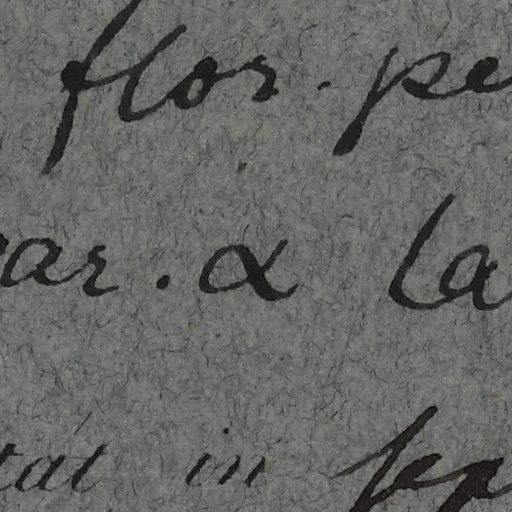 flor. pe
ar. α la
tat in